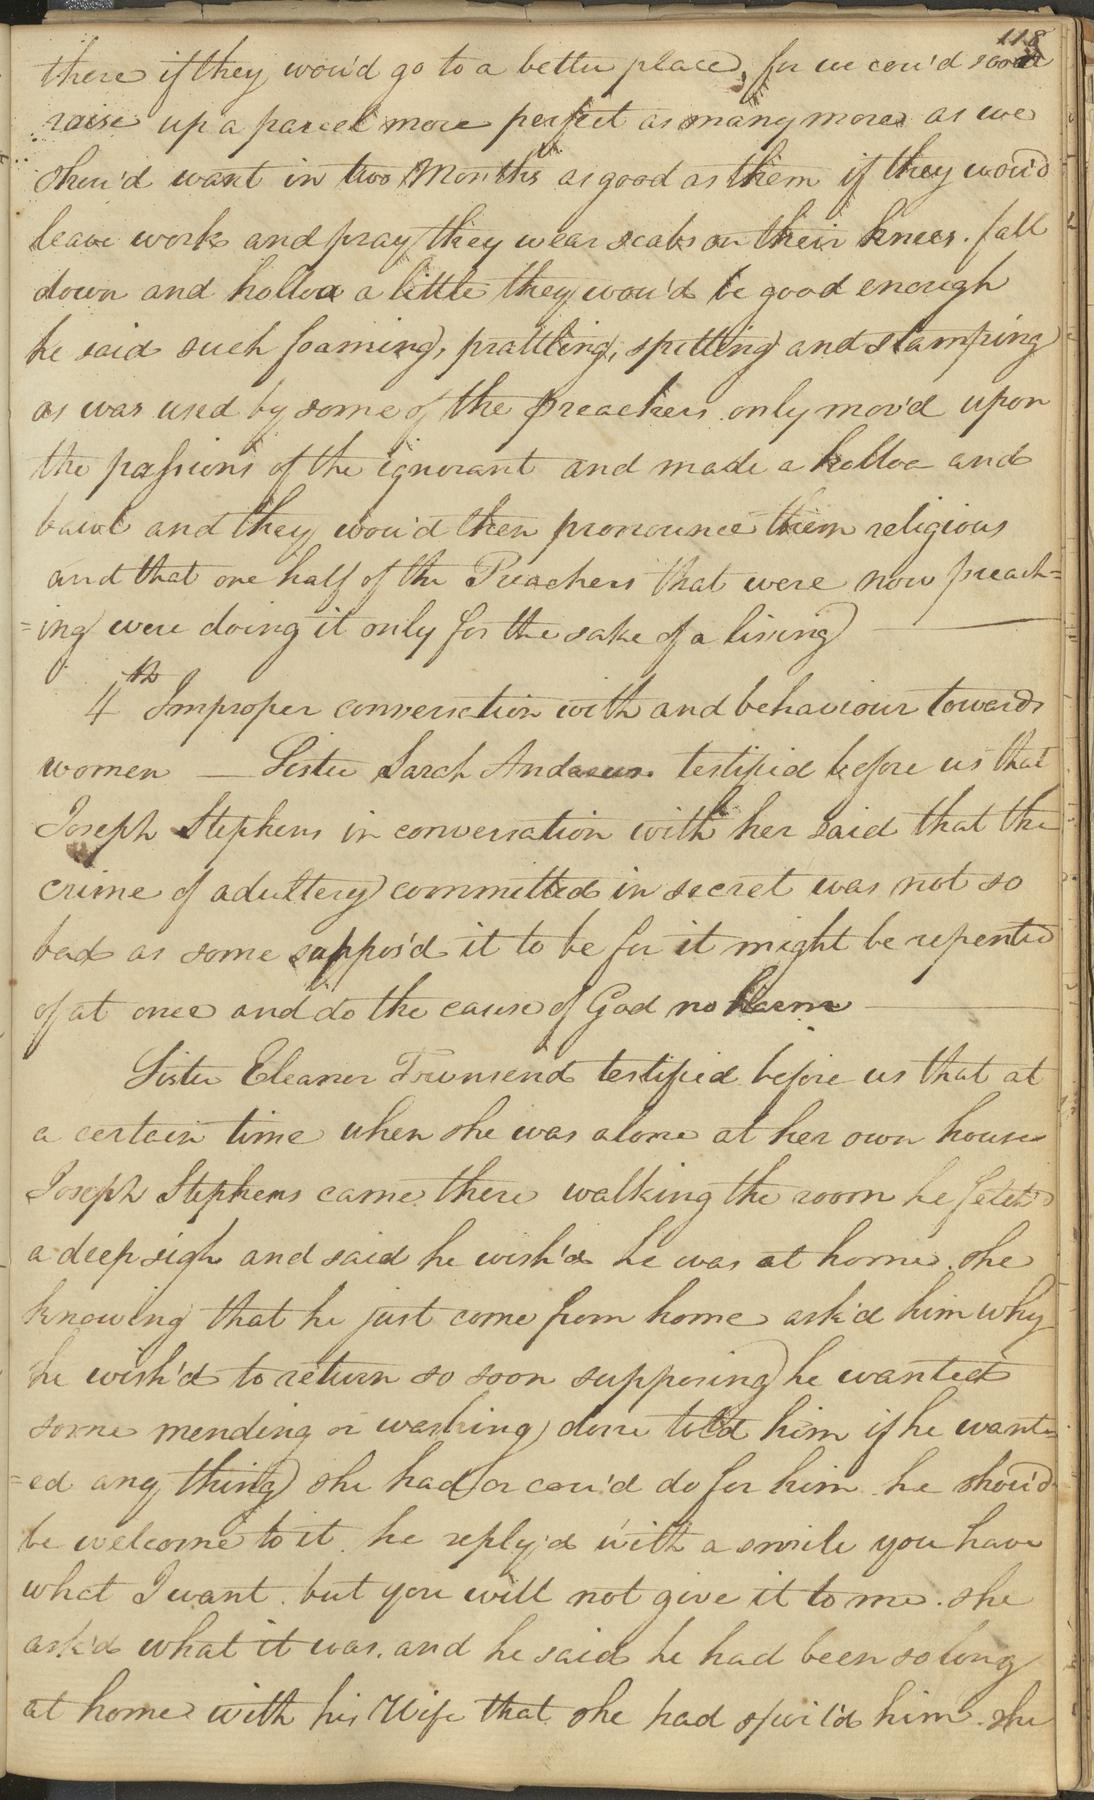 118
there if they wou'd go to a better place, for we cou'd soon
raise up a parcel more perfect as many more as we
shou'd want in two Months as good as them if they wou'd
leave work and pray they wear scabs on their knees. fall
down and holloa a little they wou'd be good enough
he said such foaming, prattling, spitting and stamping
as was used by some of the preachers only mov'd upon
the passions of the ignorant and made a holloa and
bawl and they wou'd then pronounce them religious
and that one half of the Preachers that were now preach=
=ing were doing it only for the sake of a living
4th Improper conversation with and behaviour towards
women — Sister Sarah Andrews testified before us that
Joseph Stephens in conversation with her said that the
crime of adultery committed in secret was not so
bad as some suppos'd it to be for it might be repented
of at once and do the cause of God no Harm
Sister Eleaner Townsend testified before us that at
a certain time when she was alone at her own house
Joseph Stephens came there walking the room he fetch'd
a deep sigh and said he wish'd he was at home. she
knowing that he just come from home ask'd him why
he wish'd to return so soon supposing he wanted
some mending or washing done told him if he want=
=ed any thing she had or cou'd do for him he shou'd
be welcome to it. he reply'd with a smile you have
what I want. but you will not give it to me. she
ask'd what it was. and he said he had been so long
at home with his Wife that she had spoil'd him. she